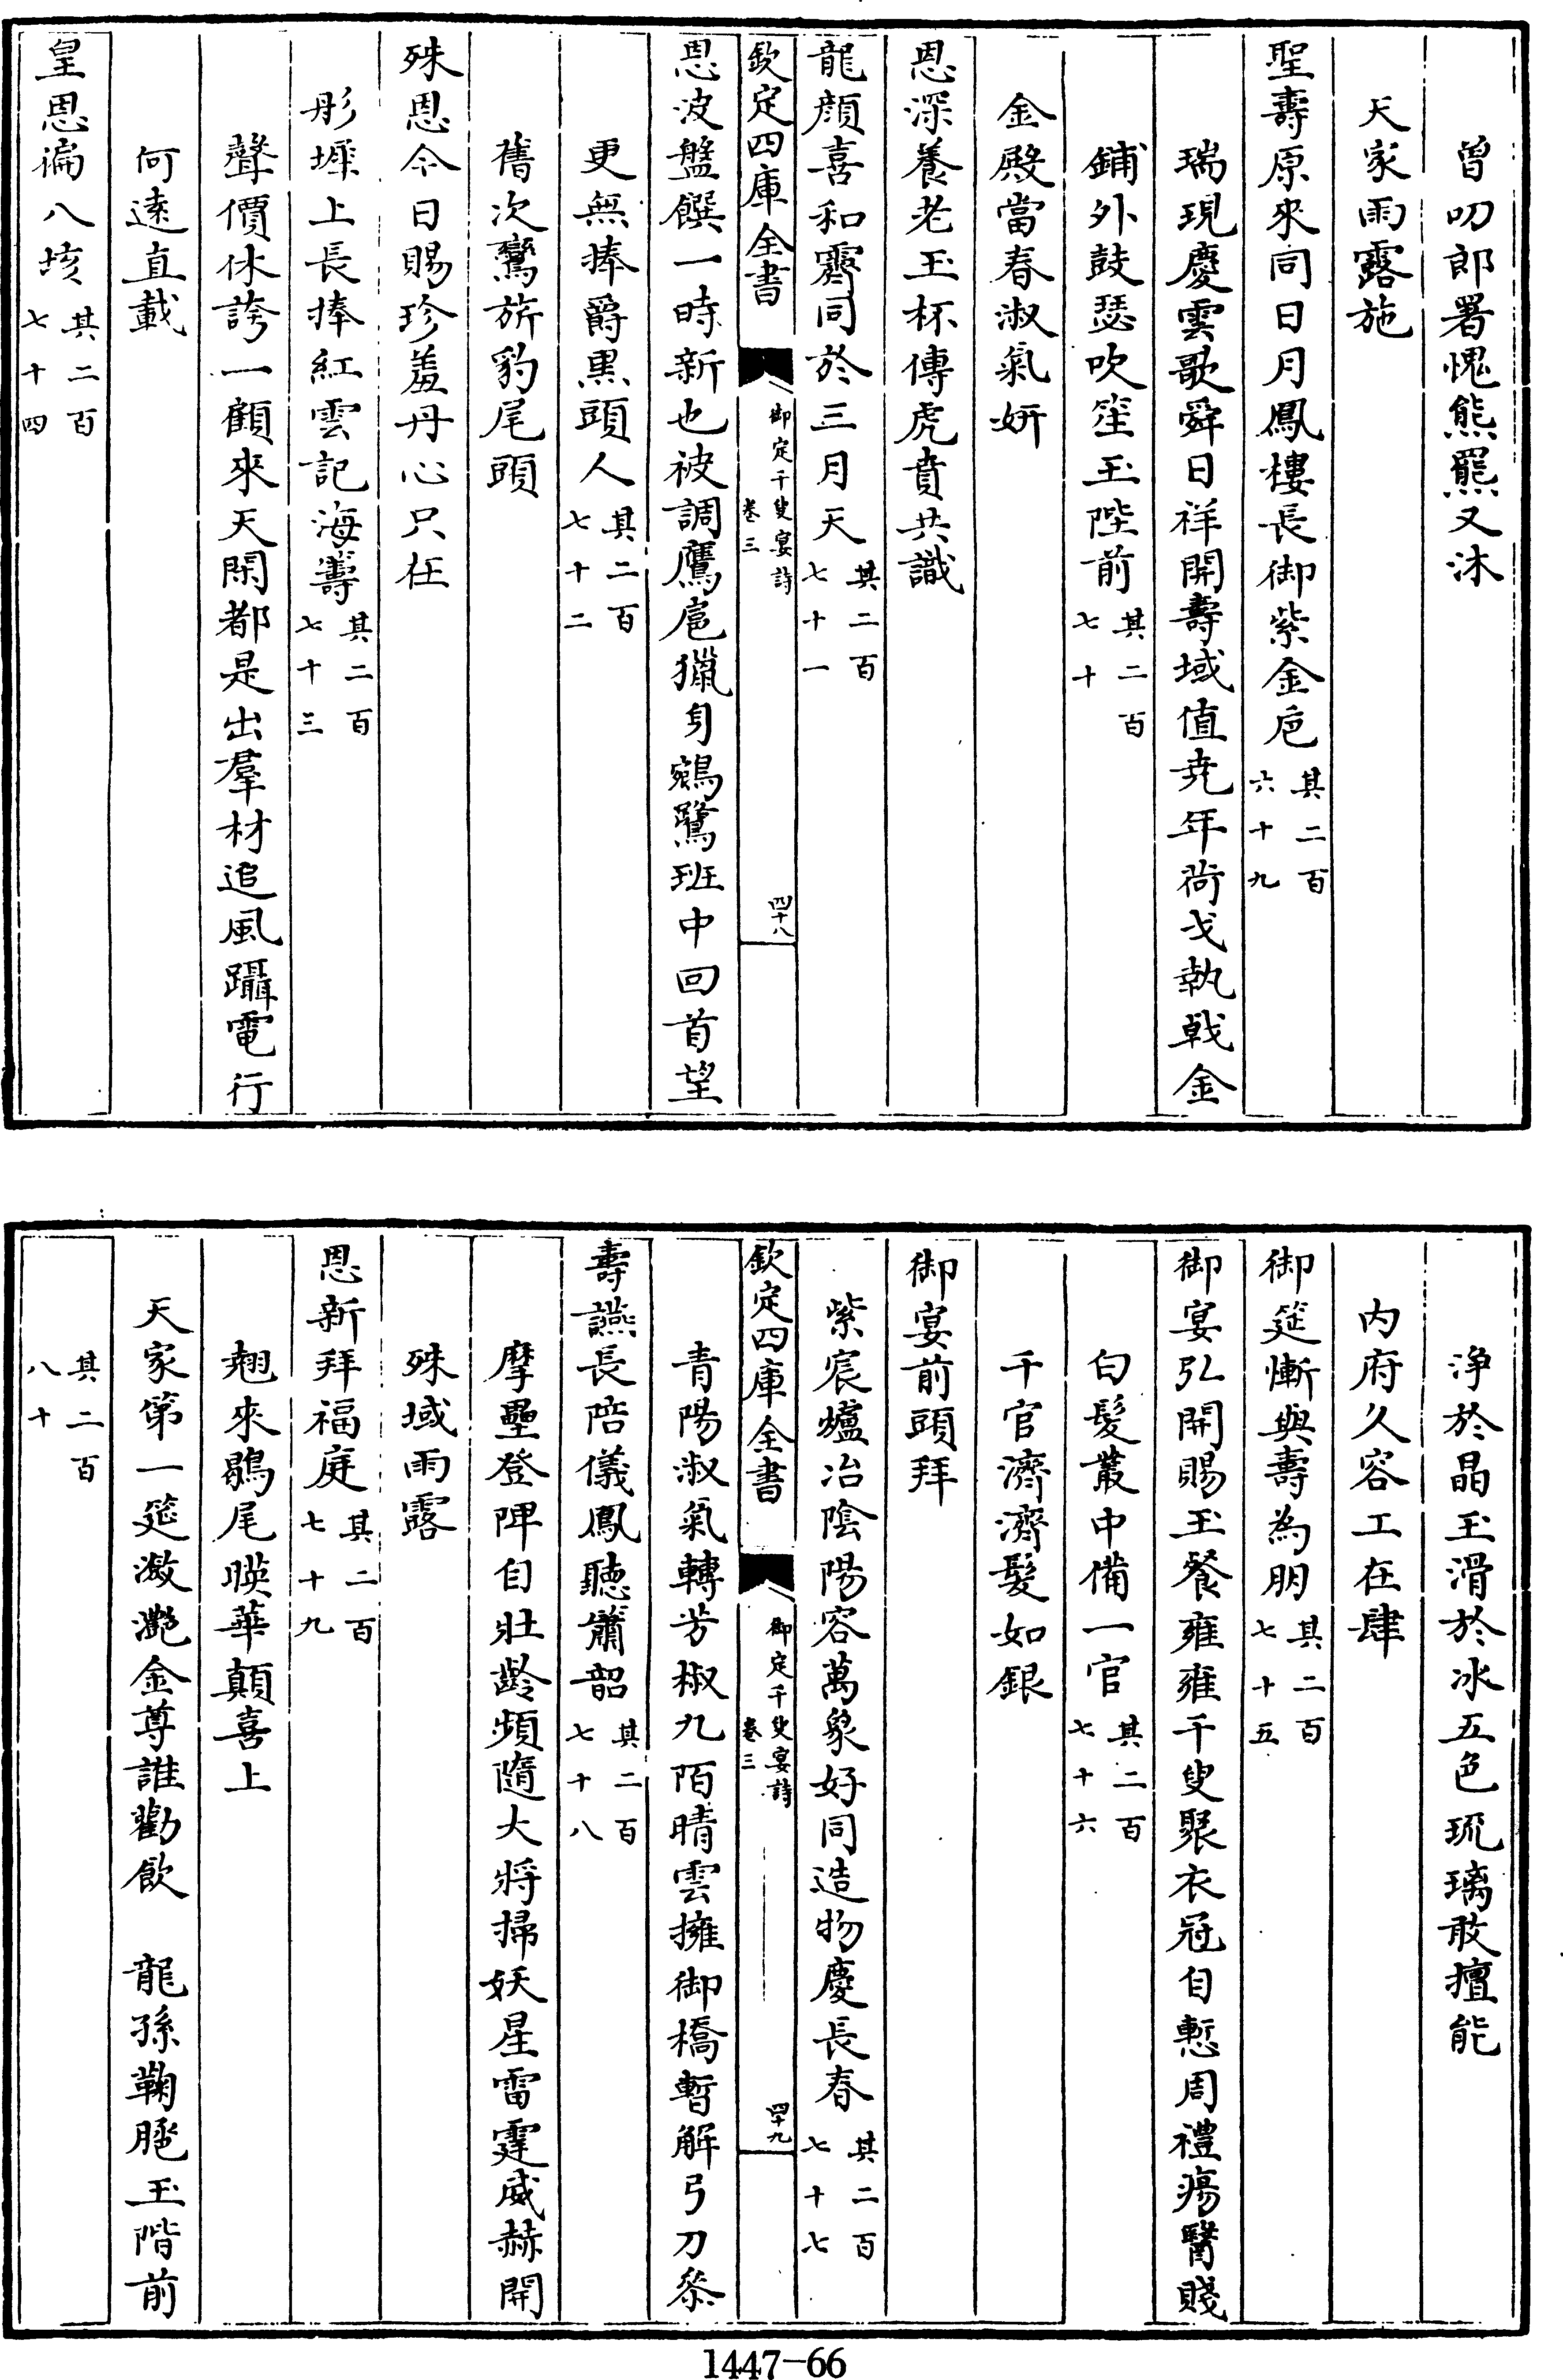 曾叨郎署愧熊羆又沐
天家雨露施
聖壽原來同日月鳳樓長御紫金巵其二百六十九
瑞現慶雲歌舜日祥開壽域值堯年荷戈執戟金
鋪外鼓瑟吹笙玉陛前其二百七十
金殿當春淑氣妍
恩深養老玉杯傳虎賁共識
龍顔喜和霽同於三月天其二百七十一
欽定四庫全書 御定千叟宴詩 卷三 四十八
恩波盤饌一時新也被調鷹扈獵身鵷鷺班中回首望
更無捧爵黒頭人其二百七十二
舊次鸞旂豹尾頭
殊恩今日賜珍羞丹心只在
彤墀上長捧紅雲記海籌其二百七十三
聲價休誇一顧來天閑都是出羣材追風躡電行
何逺直載
皇恩徧八垓其二百七十四
浄於晶玉滑於冰五色琉璃敢擅能
内府久容工在肆
御筵慚與壽為朋其二百七十五
御宴弘開賜玉餐雍雍千叟聚衣冠自慙周禮瘍醫賤
白髮叢中備一官其二百七十六
千官濟濟髮如銀
御宴前頭拜
紫宸爐冶陰陽容萬象好同造物慶長春其二百七十七
欽定四庫全書 御定千叟宴詩 卷三 四十九
青陽淑氣轉芳椒九陌晴雲擁御橋暫解弓刀叅
壽讌長陪儀鳳聽簫韶其二百七十八
摩壘登陴自壯齡頻隨大將掃妖星雷霆威赫開
殊域雨露
恩新拜福庭其二百七十九
翹來鶡尾暎華顛喜上
天家第一筵瀲灧金尊誰勸飲 龍孫鞠䠆玉階前
其二百八十
1447-66